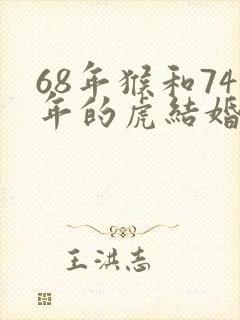 68年猴和74
年的虎結婚
王洪志